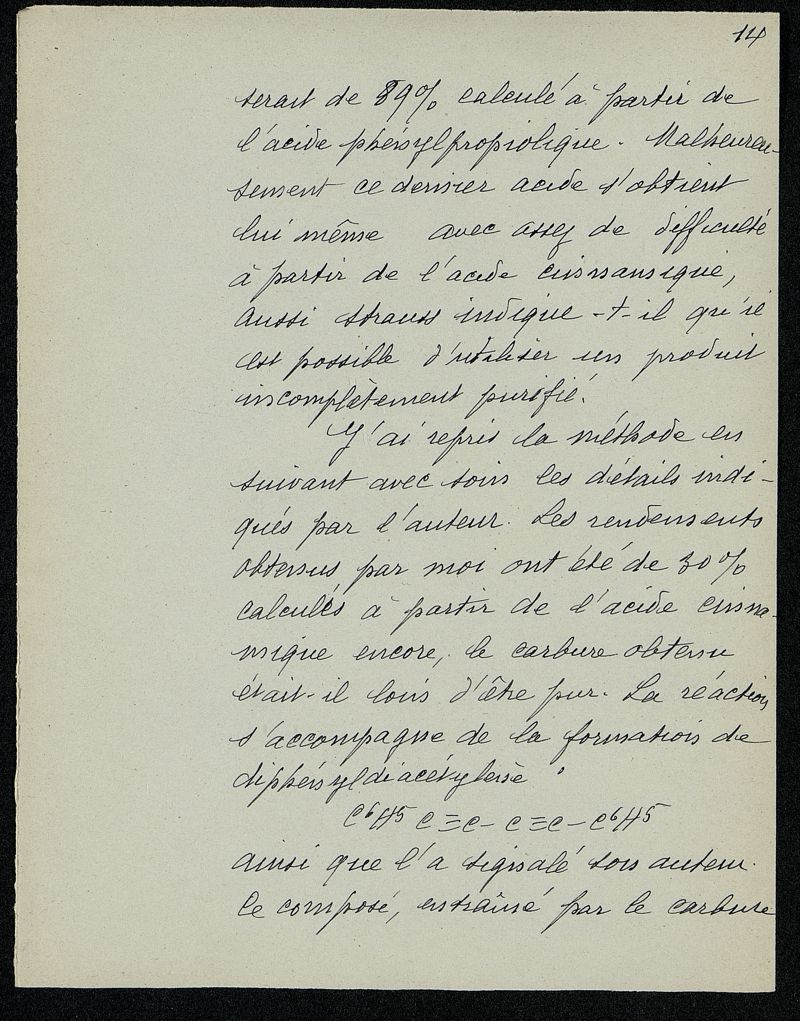 14
serait de 89% calculé à partir de
l'acide phénylpropiolique. Malheureu-
sement ce dernier acide s'obtient
lui même avec assez de difficulté
à partir de l'acide cinnamique,
aussi Strauss indique-t-il qu'il
est possible d'utiliser un produit
incomplètement purifié.
J'ai repris la méthode en
suivant avec soin les détails indi-
qués par l'auteur. Les rendements
obtenus par moi ont été de 30%
calculés à partir de l'acide cinna-
mique encore, le carbure obtenu
était-il loin d'être pur. La réaction
s'accompagne de la formation de
diphényldiacétylène
C⁶H⁵ C≡C- C≡C-C⁶H⁵
ainsi que l'a signalé son auteur.
Ce composé, entraîné par le carbure